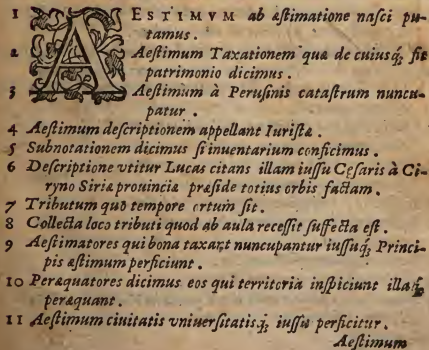 1 AESTIMVM ab æſtimatione naſci pu-
tamus.
2 Aeſtimum Taxationem quæ de cuiusq́; fit
patrimonio dicimus.
3 Aeſtimum à Peruſinis cataſtrum nuncu-
patur.
4 Aeſtimum deſcriptionem appellant Iuriſtæ.
5 Subnotationem dicimus ſi inuentarium conficimus.
6 Deſcriptione vtitur Lucas citans illam iuſſu Ceſaris à Ci-
ryno Siriæ prouinciæ præſide totius orbis factam.
7 Tributum quo tempore ortum ſit.
8 Collecta loco tributi quod ab aula receſſit ſuffecta eſt.
9 Aeſtimatores qui bona taxant nuncupantur iuſſuq́; Princi-
pis æſtimum perficiunt.
10 Peræquatores dicimus eos qui territoria inſpiciunt illaq́;
peræquant.
11 Aeſtimum ciuitatis vniuerſitatisq́; iuſſu perficitur.
Aeſtimum